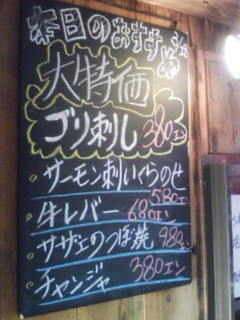 本日のおすすめ
大特価
ゴリ刺し 380エン
・サーモン刺いくらのせ
580エン
・牛レバー 680エン
・サザエのつぼ焼 980エン
・チャンジャ 380エン